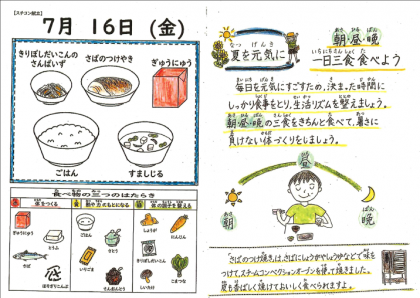 【スチコン献立】
7月 16日 (金)
きりぼしだいこんの
さんばいず
さばのつけやき
ぎゅうにゅう
ごはん
すましじる
食べ物の三つのはたらき
ぎゅうにゅう
とうふ
さば
ごはん
さとう
しょうが
にんじん
こまつな
なつ げんき
夏を元気に
あさ ひる ばん
朝・昼・晩
いちにちさんしょくた
一日三食食べよう
毎日を元気にすごすため、決まった時間に
しっかり食事をとり、生活リズムを整えましょう。
朝・昼・晩の三食をきちんと食べて、暑さに
負けない体づくりをしましょう。
昼
朝
晩
「さばのつけ焼き」は、さばにしょうがやしょうゆなどで味を
つけて、スチームコンベクションオーブンを使って焼きました。
皮も香ばしく焼けておいしく食べられますよ。